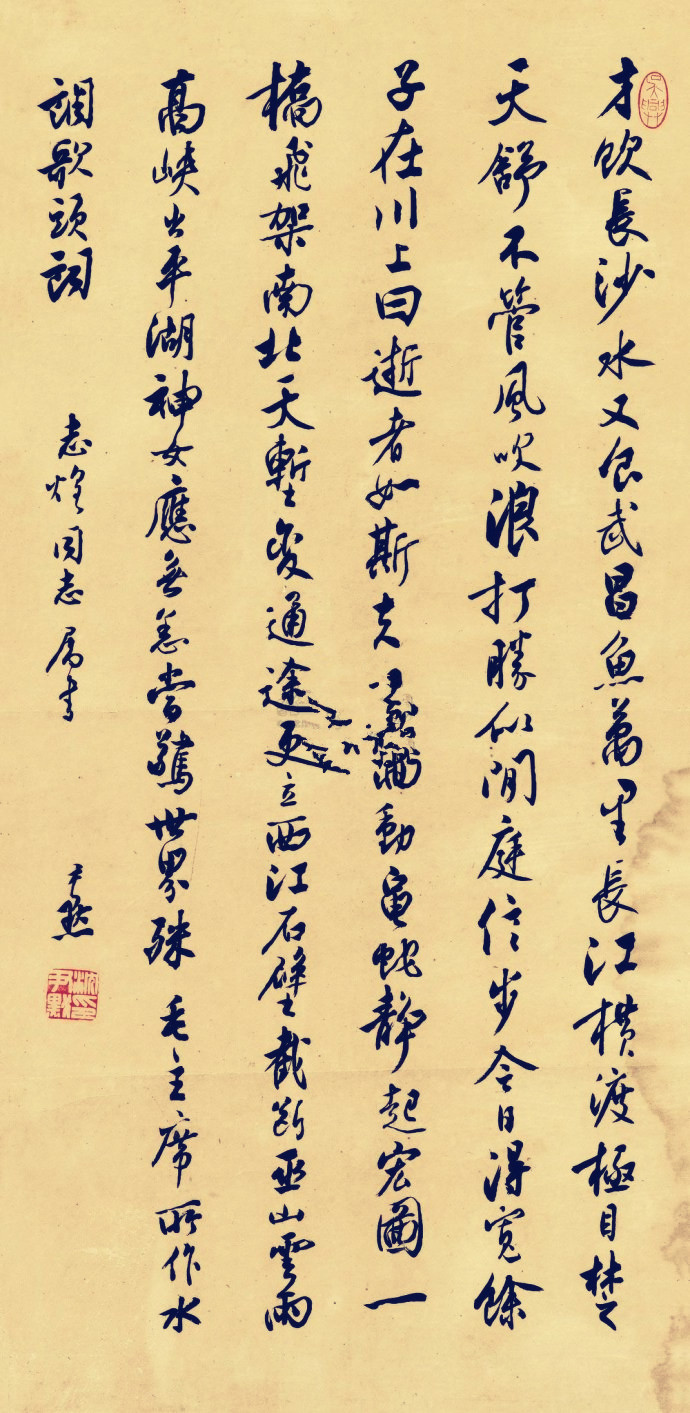 才飲長沙水又食武昌魚萬里長江橫渡極目楚
天舒不管風吹浪打勝似閒庭信步今日得寬餘
子在川上曰逝者如斯夫動龜蛇靜起宏圖一
橋飛架南北天塹變通途更立西江石壁截斷巫山雲雨
高峽出平湖神女應無恙當驚世界殊 毛主席所作水
調歌頭詞 志煌同志屬書 尹默
吳興
沈尹默印